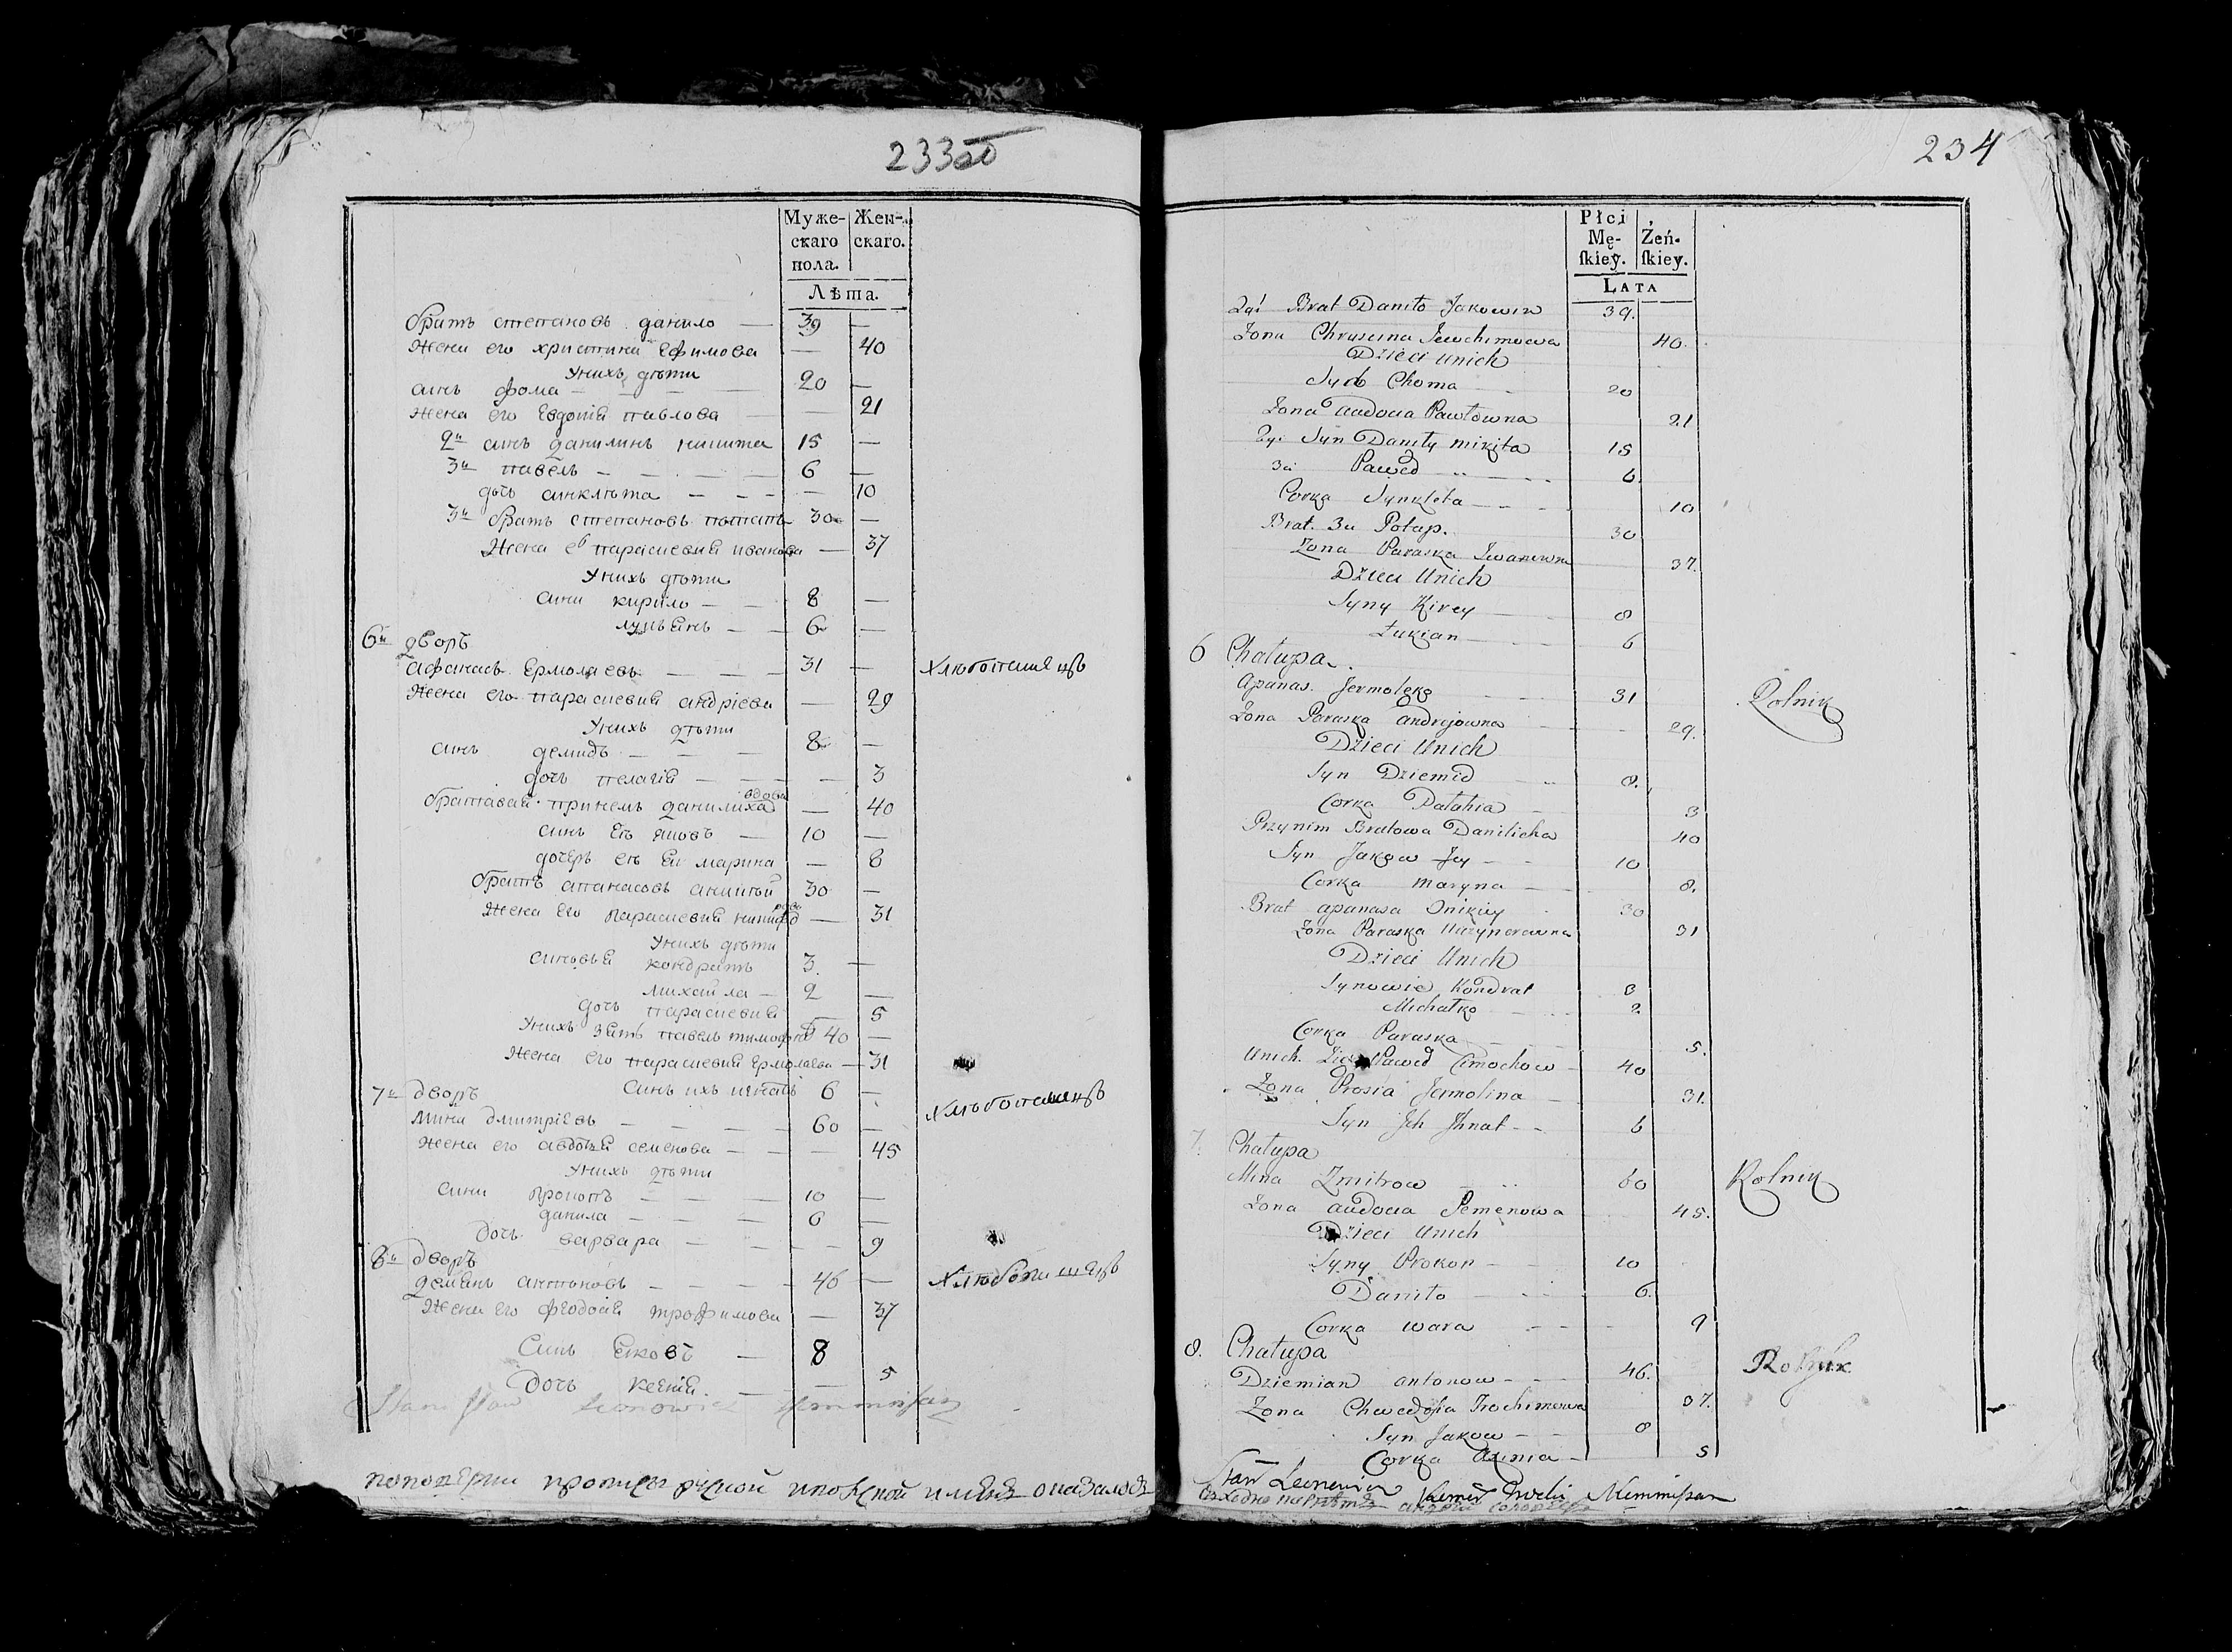 233об
Муже- Жен-
скаго скаго.
пола.
Лѣта.
братъ степановъ данило — 39 —
жена его христина Ефимова — 40
Унихъ дѣти
синъ фома — 20 —
жена его Евдотія павлова — 21
2й синъ данилинъ никита 15 —
3й павелъ — 6 —
дочь синклѣта — 10
3й братъ степановъ потапъ 30 —
Жена его парасиевия иванова — 37
Унихъ дѣти
сини кирило — 8 —
лукьянъ — 6 —
6й дворъ
афанасъ Ермолаевъ — 31 — хлюбопашецъ
Жена его парасиевия андріева — 29
Унихъ дѣти
синъ демидъ — 8 —
дочь пелагія — 3
братавая принемъ данилиха вдова — 40
синъ Ея яковъ — 10 —
дочеръ ея марина — 8
братъ апанасовъ аникѣй 30 —
Жена его парасиевия — 31
Унихъ дѣти
синовья кондратъ 3 —
михайла — 2 —
дочь парасиевия 5
Унихъ зять павелъ 40 —
Жена его парасиевия Ермолаева — 31
Синъ ихъ игнатъ 6 —
7й дворъ
мина дмитріевъ — 60 — хлѣбопашецъ
жена его авдотья семенова — 45
Унихъ дѣти
сини прокопъ — 10 —
данила — 6 —
дочь варвара — 9
8й дворъ
демянъ антоновъ — 46 — хлюбопашецъ
Жена его феодосия трофимова — 37
Синъ яковъ — 8
дочь ксенія — 5
234
Płci
Mę- Żeń-
skiey. skiey.
LATA
2gi Brat Daniło Jakowin 39.
Żona Chruscina Jewchimowa 40.
Dzieci Unich
Syn Choma 20
Żona Audocia Pawłowna 21
2gi Syn Daniły Mikita 15
3ci Paweł 6
Corka Synkleta — 10
Brat 3ci Potap. 30
Żona Paraska Iwanowna 37.
Dzieci Unich
Syny Kirey 8
Łukian 6
6 Chałupa
Apanas Jermoleko 31 Rolnik
Żona Paraska Andrejowna 29.
Dzieci Unich
Syn Dziemid 8.
Corka Pałahia 3
Przynim Bratowa Danilicha 40
Syn Jakow Jey 10
Corka Maryna 8.
Brat Apanasa Onikiey 30
Żona Paraska 31
Dzieci Unich
Synowie Kondrat 3
Michałko 2
Corka Paraska 5.
Unich Paweł Cimochow 40
Żona Prosia Jermolina 31.
Syn Ich Ihnat 6
7. Chałupa
Mina Zmitrow 60 Rolnik
Żona Audocia Semenowa 45.
Dzieci Unich
Syny Prokop 10
Daniło 6.
Corka Wara 9
8. Chałupa
Dziemian Antonow 46. Rolnik
Żona Chwedosia Trochimowa 37.
Syn Jakow 8
Corka 5